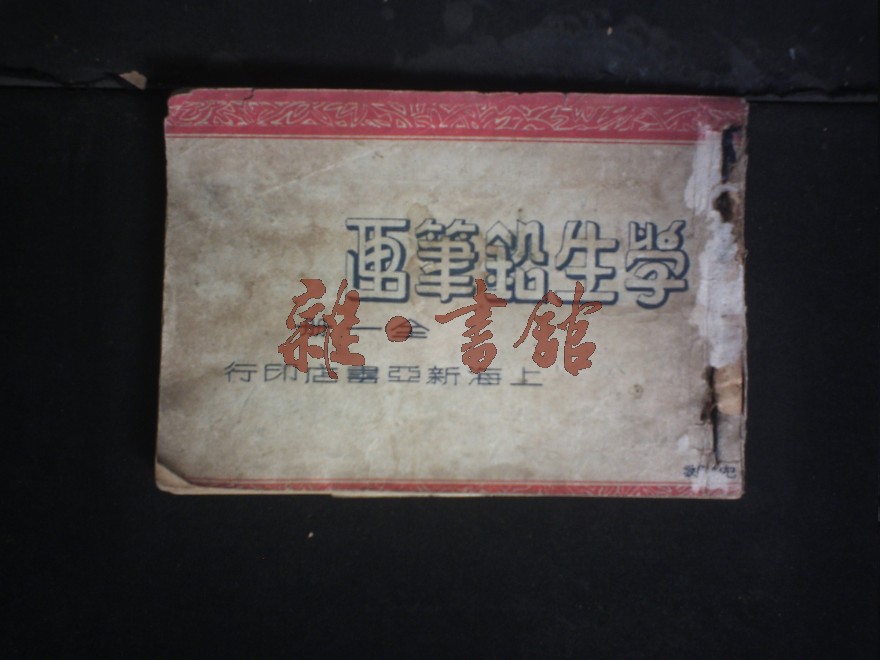 學生鉛筆画
全一冊
雜·書館
上海新亞書店印行